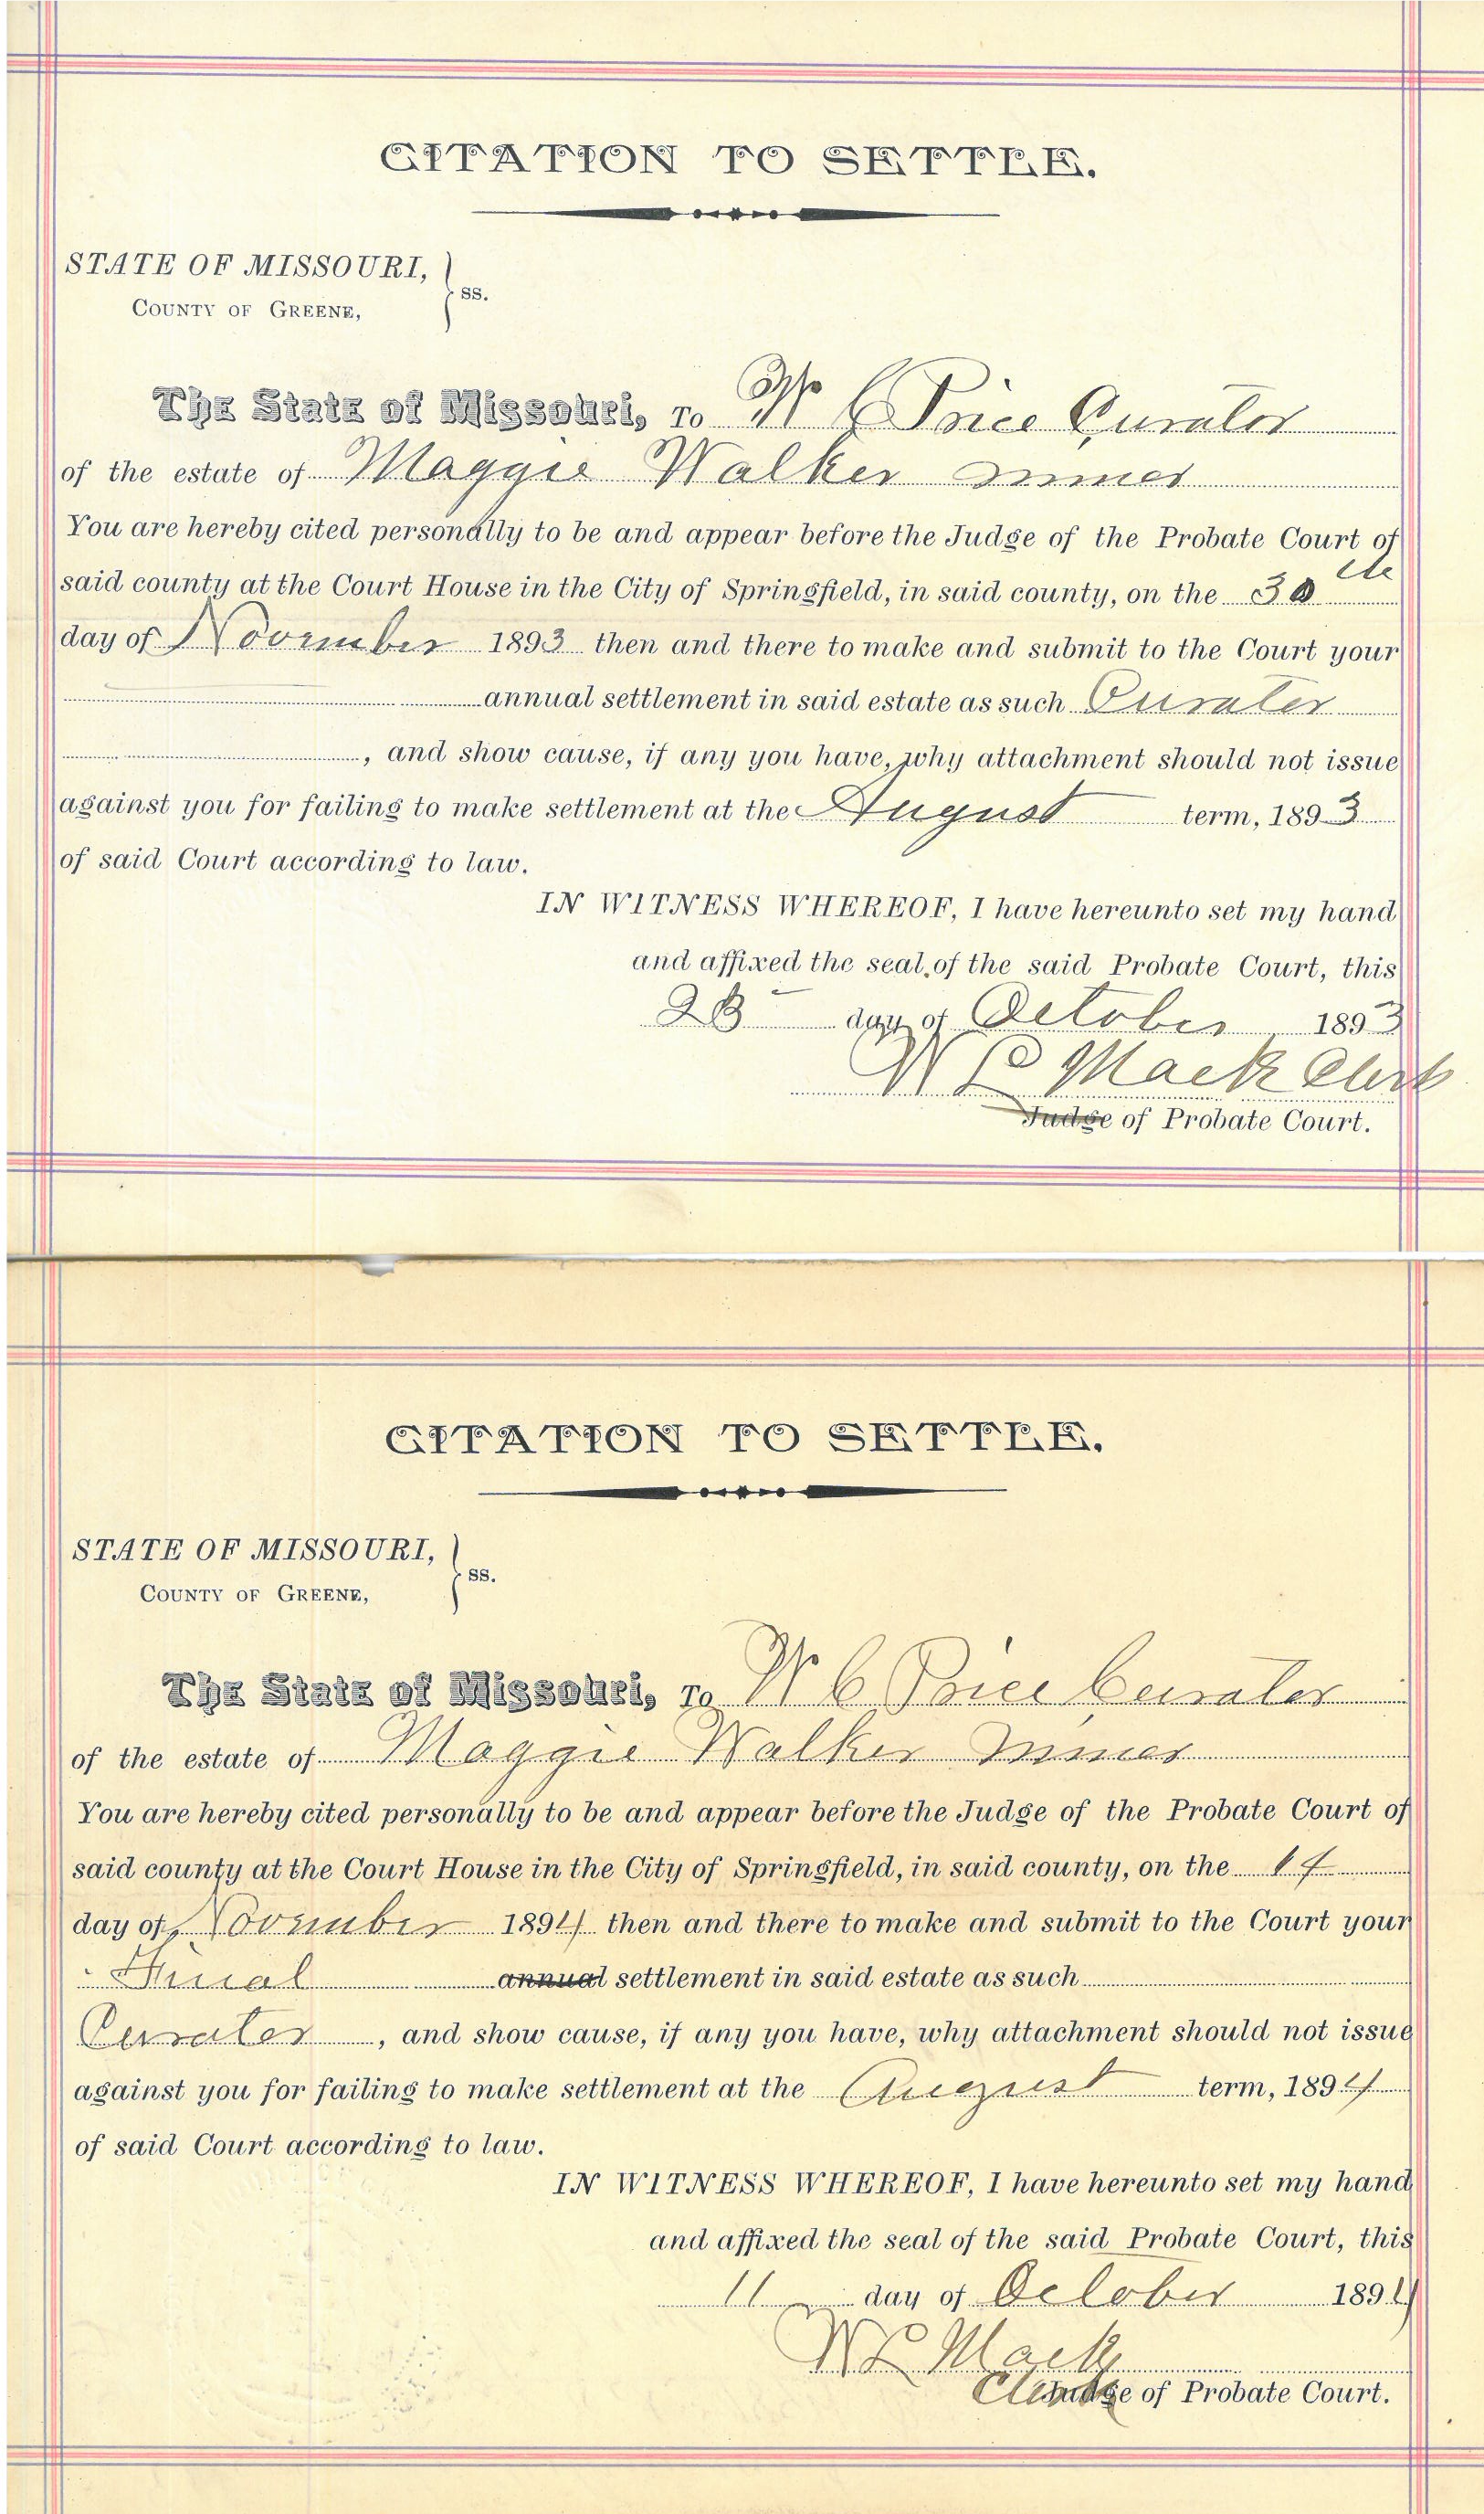 CITATION TO SETTLE.
STATE OF MISSOURI,
COUNTY OF GREENE,
ss.
The State of Missouri, To W C Price Curator
of the estate of Maggie Walker minor
You are hereby cited personally to be and appear before the Judge of the Probate Court of
said county at the Court House in the City of Springfield, in said county, on the 30 th
day of November 1893 then and there to make and submit to the Court your
annual settlement in said estate as such Curator
, and show cause, if any you have, why attachment should not issue
against you for failing to make settlement at the August term, 1893
of said Court according to law.
IN WITNESS WHEREOF, I have hereunto set my hand
and affixed the seal of the said Probate Court, this
23 day of October 1893
W L Mack Clerk
Judge of Probate Court.
CITATION TO SETTLE.
STATE OF MISSOURI,
COUNTY OF GREENE,
ss.
The State of Missouri, To W C Price Curator
of the estate of Maggie Walker minor
You are hereby cited personally to be and appear before the Judge of the Probate Court of
said county at the Court House in the City of Springfield, in said county, on the 14
day of November 1894 then and there to make and submit to the Court your
Final annual settlement in said estate as such
Curator, and show cause, if any you have, why attachment should not issue
against you for failing to make settlement at the August term, 1894
of said Court according to law.
IN WITNESS WHEREOF, I have hereunto set my hand
and affixed the seal of the said Probate Court, this
11 day of October 1894
W L Mack
Clerk Judge of Probate Court.